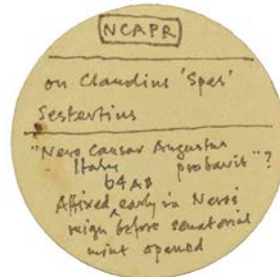 NCAPR
on Claudius 'Spes'
Sestertius
"Nero Caesar Augustus
Italy probavit"?
64 AD
Affixed ^ early in Nero's
reign before senatorial
mint opened